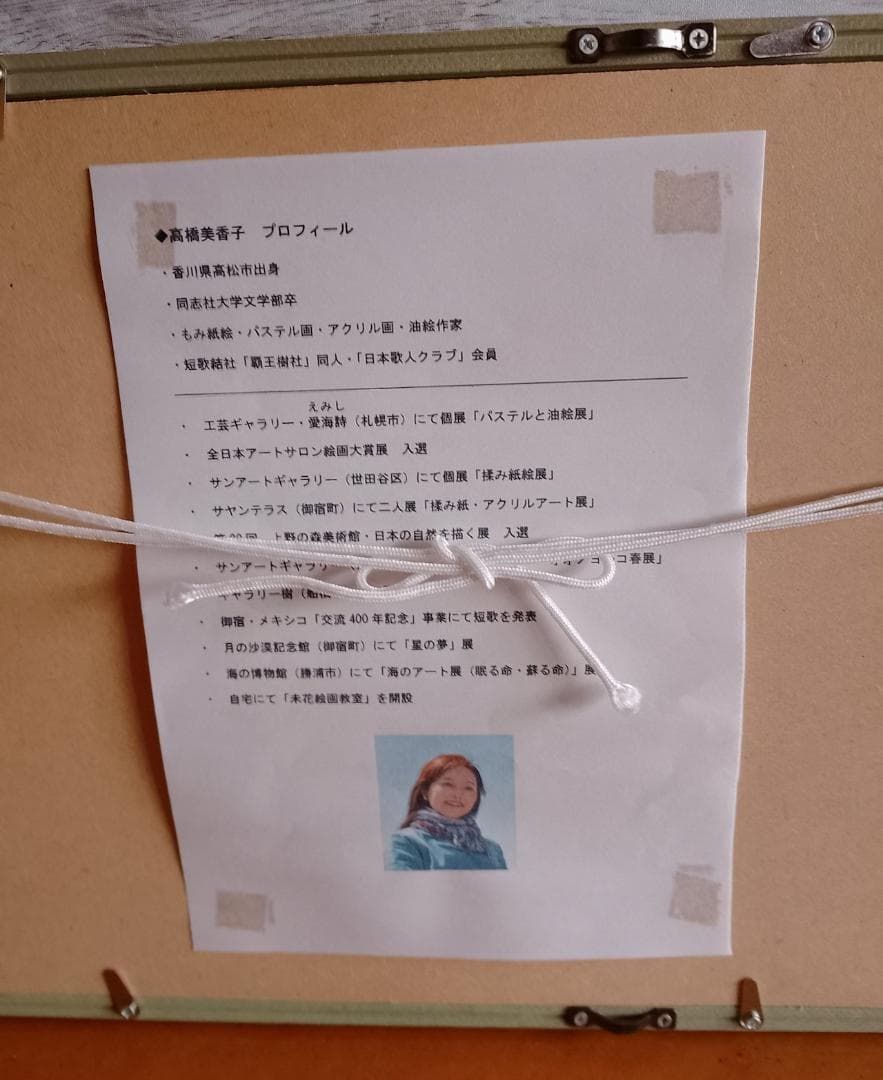 ◆高橋美香子　プロフィール
・香川県高松市出身
・同志社大学文学部卒
・もみ紙絵・パステル画・アクリル画・油絵作家
・短歌結社「覇王樹社」同人・「日本歌人クラブ」会員
えみし
・工芸ギャラリー・愛海詩（札幌市）にて個展「パステルと油絵展」
・全日本アートサロン絵画大賞展　入選
・サンアートギャラリー（世田谷区）にて個展「揉み紙絵展」
・サヤンテラス（御宿町）にて二人展「揉み紙・アクリルアート展」
上野の森美術館・日本の自然を描く展　入選
・サンアートギャラリー 春展」
・ギャラリー樹（船橋
・御宿・メキシコ「交流 400 年記念」事業にて短歌を発表
・月の沙漠記念館（御宿町）にて「星の夢」展
・海の博物館（勝浦市）にて「海のアート展（眠る命・蘇る命）」展
・自宅にて「未花絵画教室」を開設